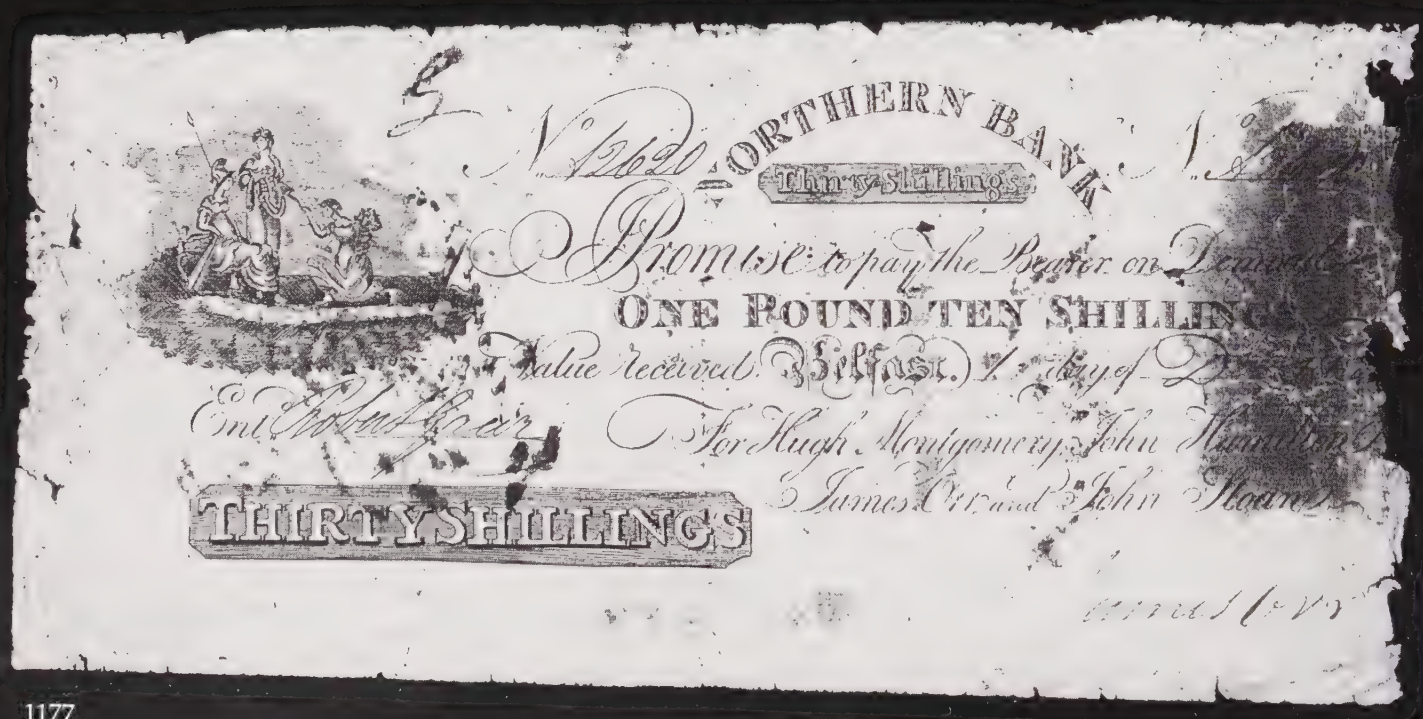 5
No 12620 NORTHERN BANK No
Thirty Shillings
I Promise to pay the Bearer on Demand
ONE POUND TEN SHILLING
Value received. Belfast. 1 day of
Ent. Robert
For Hugh Montgomery, John Hamilton
James Orr and John Sloane
THIRTY SHILLINGS
James Orr
1177